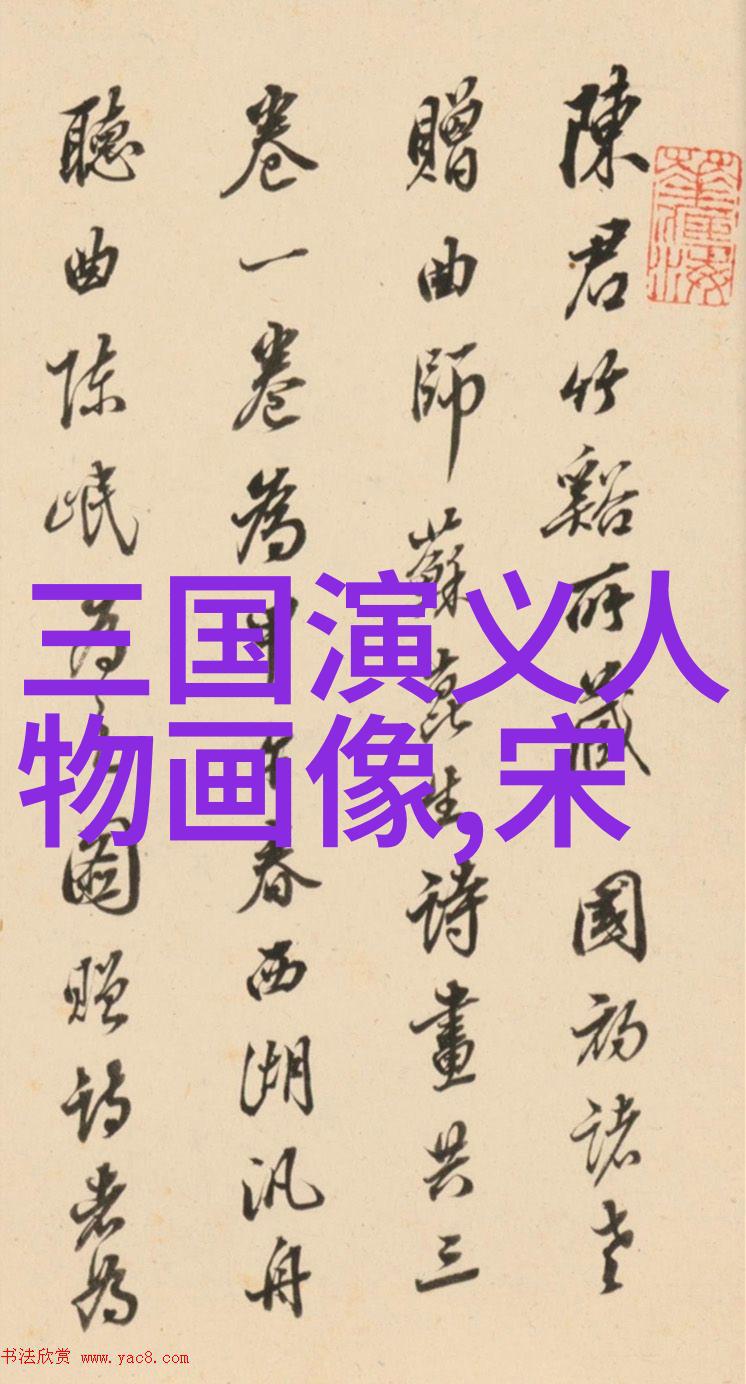 陳君竹谿所藏國初諸老
贈曲師蘇崑生詩畫共三
卷一卷為甲午春西湖汎舟
聽曲陈岷為之圖贈詩者為
三国演义人
物画像,宋
书法欣赏 www.yac8.com